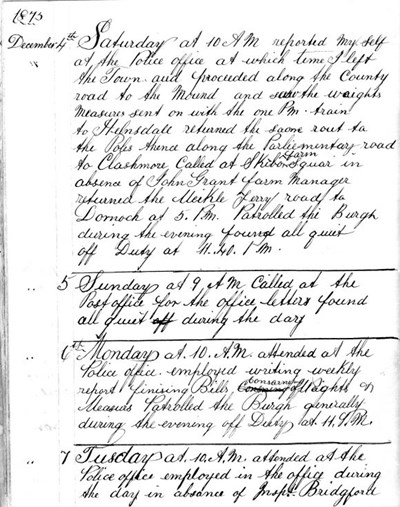 1875
December 4th Saturday at 10 A M reported my self
at the Police office at which time I left
the Town and proceeded along the County
road to the Mound and saw the weights
Measures sent on with the one P.m. train
to Helmsdale returned the same rout to
the Poles thence along the Parliementary road
to Clashmore Called at Skibo Farm Squar in
absence of John Grant farm Manager
returned the Meikle Ferry road to
Dornoch at 5. P.M. Patrolled the Burgh
during the evening found all quiet
off Duty at 11.40. P.M.
" 5 Sunday at 9 A M Called at the
Post office for the office letters found
all quiet off during the day
" 6th Monday at 10. A.M. attended at the
Police office employed writing weekly
report finising Bills Consarning Weights &
Measurs Patrolled the Burgh generally
during the evening off Duty at 11. P.M.
" 7 Tuesday at 10. A.M. attended at the
Police office employed in the office during
the day in absence of Inspr. Bridgford